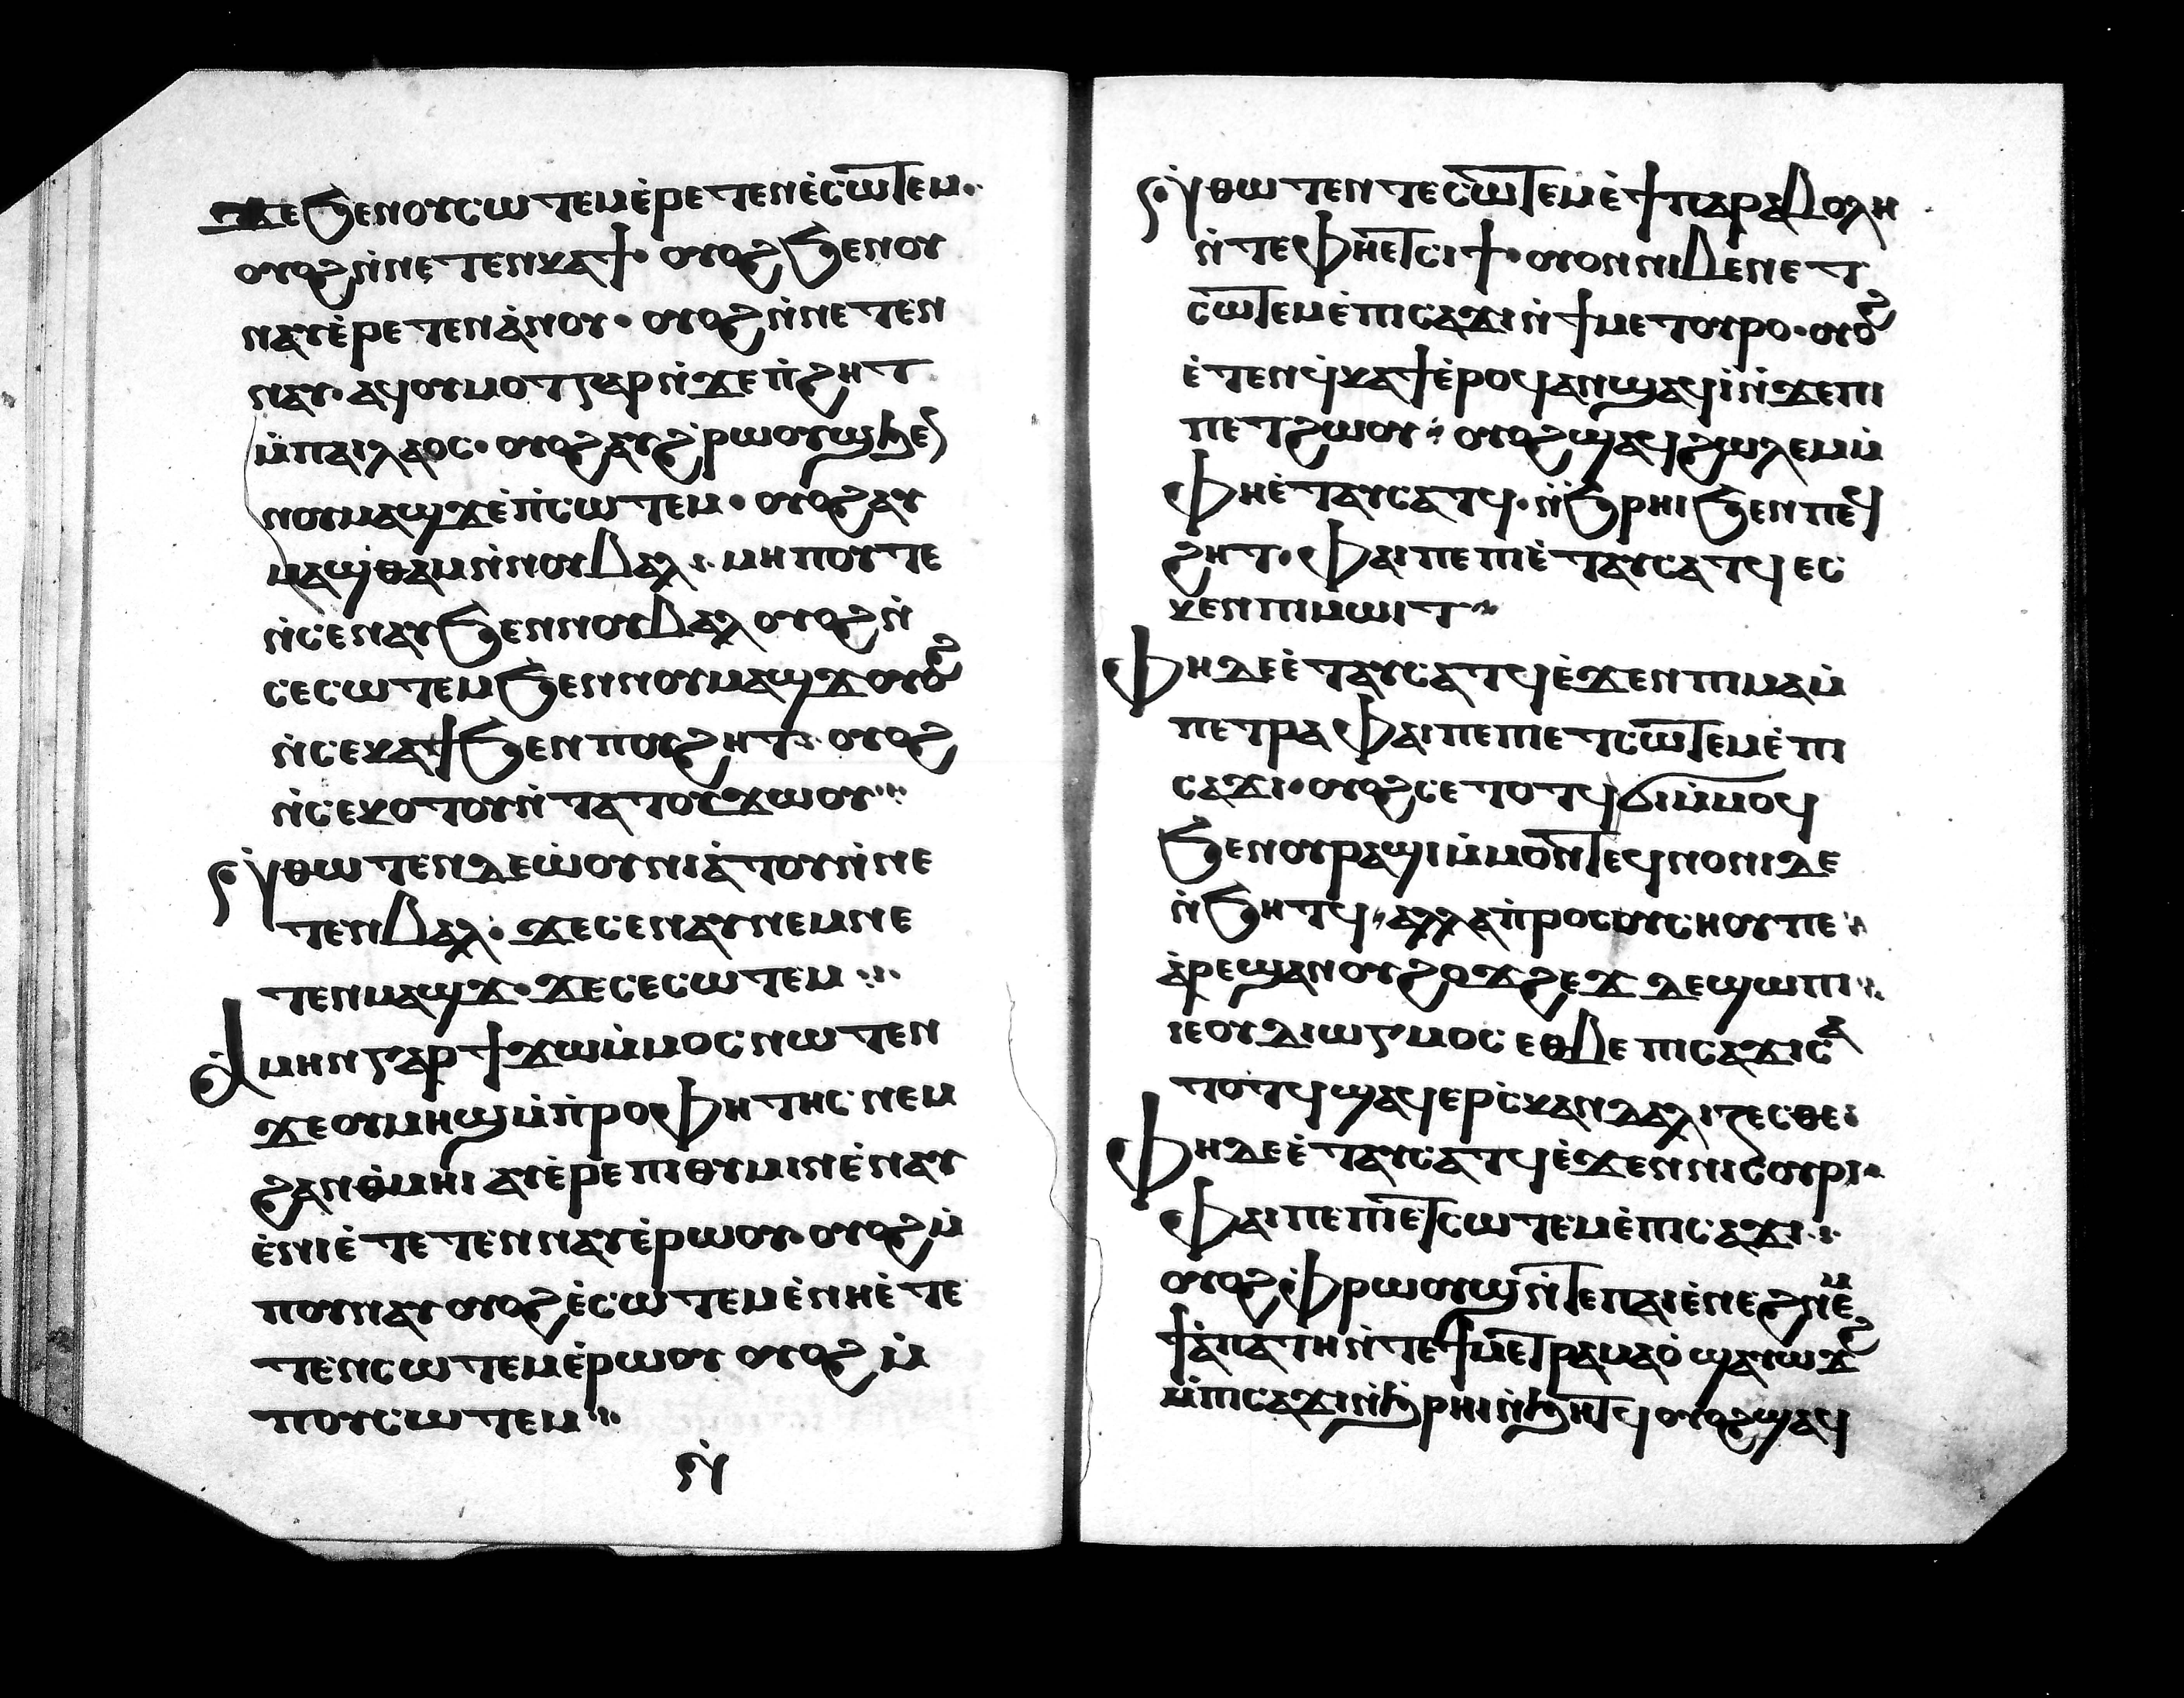 ϫⲉϧⲉⲛⲟⲩⲥⲱⲧⲉⲙⲉ̀ⲣⲉⲧⲉⲛⲉ̀ⲥⲱⲧⲉⲙ·
ⲟⲩⲟϩⲛ̀ⲛⲉⲧⲉⲛⲕⲁϯ· ⲟⲩⲟϩϧⲉⲛⲟⲩ
ⲛⲁⲩⲉ̀ⲣⲉⲧⲉⲛⲁ̀ⲛⲟⲩ· ⲟⲩⲟϩⲛ̀ⲛⲉⲧⲉⲛ
ⲛⲁⲩ· ⲁϥⲟⲩⲙⲟⲧⲅⲁⲣⲛ̀ϫⲉⲡ̀ϩⲏⲧ
ⲙ̀ⲡⲁⲓⲗⲁⲟⲥ· ⲟⲩⲟϩⲁⲩϩ̀ⲣⲱⲟⲩϣϧⲉⲛ
ⲛⲟⲩⲙⲁϣϫⲉ̀ⲡ̀ⲥⲱⲧⲉⲙ· ⲟⲩⲟϩⲁⲩ
ⲙⲁϣⲑⲁⲙⲛ̀ⲛⲟⲩⲃⲁⲗ· ⲙⲏⲡⲟⲩⲧⲉ
ⲛ̀ⲥⲉⲛⲁⲩϧⲉⲛⲛⲟⲩⲃⲁⲗ ⲟⲩⲟϩⲛ̀
ⲥⲉⲥⲱⲧⲉⲙϧⲉⲛⲛⲟⲩⲙⲁϣϫ ⲟⲩⲟϩ
ⲛ̀ⲥⲉⲕⲁϯϧⲉⲛⲡⲟⲩϩⲏⲧ· ⲟⲩⲟϩ
ⲛ̀ⲥⲉⲕⲟⲧⲟⲩⲛ̀ⲧⲁⲧⲟⲩϫⲱⲟⲩ
ⲓ̅ⲋ̅ ⲛⲑⲱⲧⲉⲛⲇⲉⲱ̀ⲟⲩⲛⲓⲁ̀ⲧⲟⲩⲛ̀ⲛⲉ
ⲧⲉⲛⲃⲁⲗ· ϫⲉⲥⲉⲛⲁⲩⲛⲉⲙⲛⲉ
ⲧⲉⲛⲙⲁϣϫ· ϫⲉⲥⲉⲥⲱⲧⲉⲙ
ⲁⲙⲏⲛⲅⲁⲣϯϫⲱⲙ̀ⲙⲟⲥⲛⲱⲧⲉⲛ
ϫⲉⲟⲩⲙⲏϣⲙ̀ⲡ̀ⲣⲟⲫⲏⲧⲏⲥ ⲛⲉⲙ
ϩⲁⲛⲑ̀ⲙⲏⲓ ⲁⲩⲉ̀ⲣⲉⲡⲓⲑⲩⲙⲓⲛⲉ̀ⲛⲁⲩ
ⲉ̀ⲛⲓⲉ̀ⲧⲉⲧⲉⲛⲛⲁⲩⲉ̀ⲣⲱⲟⲩ· ⲟⲩⲟϩⲙ̀
ⲡⲟⲩⲛⲁⲩ ⲟⲩⲟϩⲉ̀ⲥⲱⲧⲉⲙⲉ̀ⲛⲏⲉ̀ⲧⲉ
ⲧⲉⲛⲥⲱⲧⲉⲙⲉ̀ⲣⲱⲟⲩ ⲟⲩⲟϩ ⲙ̀
ⲡⲟⲩⲥⲱⲧⲉⲙ
ⲑⲱⲧⲉⲛⲧⲉⲥⲱⲧⲉⲙⲉ̀ϯⲡⲁⲣⲁⲃⲟⲗⲏ
ⲛ̀ⲧⲉⲫⲏⲉⲧⲥⲓϯ· ⲟⲩⲟⲛⲛⲓⲃⲉⲛⲉⲧ
ⲥⲱⲧⲉⲙⲉ̀ⲡⲓⲥⲁϫⲓⲛ̀ϯⲙⲉⲧⲟⲩⲣⲟ· ⲟⲩⲟϩ
ⲉ̀ⲧⲉⲛϥⲕⲁϯⲉ̀ⲣⲟϥⲁⲛϣⲁϥⲓ̀ⲛ̀ϫⲉⲡⲓ
ⲡⲉⲧϩⲱⲟⲩ· ⲟⲩⲟϩϣⲁϥϩⲱⲗⲉⲙⲙ̀
ⲫⲏⲉ̀ⲧⲁⲩⲥⲁⲧϥ· ⲛ̀ϧⲣⲏⲓϧⲉⲛⲡⲉϥ
ϩⲏⲧ· ⲫⲁⲓⲡⲉⲡⲓⲉ̀ⲧⲁⲩⲥⲁⲧϥ ⲉⲥ
ⲕⲉⲛⲡⲓⲙⲱⲓⲧ
ⲫⲏⲇⲉⲉ̀ⲧⲁⲩⲥⲁⲧϥⲉ̀ϫⲉⲛⲡⲓⲙⲁⲙ̀
ⲡⲉⲧⲣⲁ ⲫⲁⲓⲡⲉⲡⲓⲉⲧⲥⲱⲧⲉⲙⲉ̀ⲡⲓ
ⲥⲁϫⲓ· ⲟⲩⲟϩⲥⲉⲧⲟⲧϥϭⲓⲙ̀ⲙⲟϥ
ϧⲉⲛⲟⲩⲣⲁϣⲓⲙ̀ⲙⲟⲛⲧⲉϥⲛⲟⲩⲛⲓⲇⲉ
ⲛ̀ϧⲏⲧϥ· ⲁⲗⲗⲁⲡ̀ⲣⲟⲥⲟⲩⲥⲏⲟⲩⲡⲉ
ⲁ̀ⲣⲉϣⲁⲛⲟⲩϩⲟϫϩⲉϫ ⲇⲉϣⲱⲡⲓ
ⲓⲉⲟⲩⲇⲓⲱⲅⲙⲟⲥ ⲉⲑⲃⲉ ⲡⲓⲥⲁϫⲓⲥⲁ
ⲧⲟⲧϥϣⲁϥⲉⲣⲥ̀ⲕⲁⲛⲇⲁⲗⲓⲍⲉⲥⲑⲉ
ⲫⲏⲇⲉⲉ̀ⲧⲁⲩⲥⲁⲧϥⲉ̀ϫⲉⲛⲛⲓⲥⲟⲩⲣⲓ·
ⲫⲁⲓⲡⲉⲡⲓⲉⲧⲥⲱⲧⲉⲙⲉ̀ⲡⲓⲥⲁϫⲓ
ⲟⲩⲟϩⲫ̀ⲣⲱⲟⲩϣⲛ̀ⲧⲉⲡⲁⲓⲉ̀ⲛⲉϩⲛⲉⲙ
ϯⲁ̀ⲡⲁⲧⲏⲛ̀ⲧⲉϯⲙⲉⲧⲣⲁⲙⲁⲟ̀ ϣⲁⲩⲱϫϩ
ⲙ̀ⲡⲓⲥⲁϫⲓⲛ̀ϧⲣⲏⲓⲛ̀ϧⲏⲧϥ ⲟⲩⲟϩϣⲁϥ